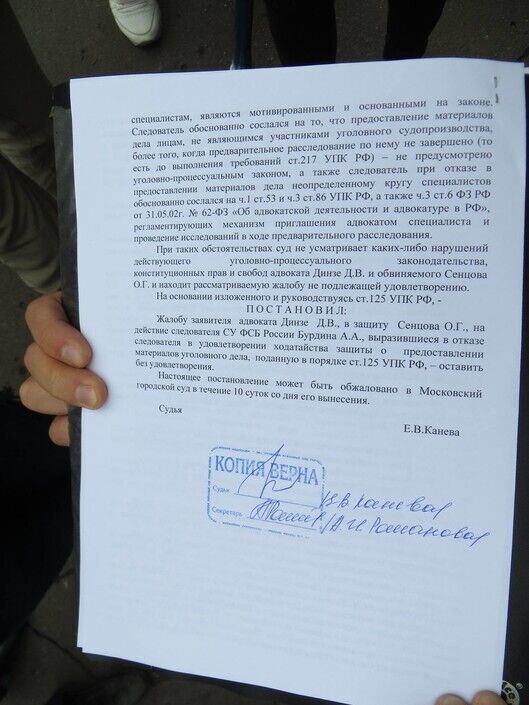 специалистам, являются мотивированными и основанными на законе.
Следователь обоснованно сослался на то, что предоставление материалов
дела лицам, не являющимся участниками уголовного судопроизводства,
(более того, когда предварительное расследование по нему не завершено (то
есть до выполнения требований ст.217 УПК РФ) – не предусмотрено
уголовно-процессуальным законом, а также следователь при отказе в
предоставлении материалов дела неопределенному кругу специалистов
обоснованно сослался на ч.1 ст.53 и ч.3 ст.86 УПК РФ, а также ч.3 ст.6 ФЗ РФ
от 31.05.02г. № 62-ФЗ «Об адвокатской деятельности и адвокатуре в РФ»,
регламентирующих механизм приглашения адвокатом специалиста и
проведение исследований в ходе предварительного расследования.
При таких обстоятельствах суд не усматривает каких-либо нарушений
действующего уголовно-процессуального законодательства,
конституционных прав и свобод адвоката Динзе Д.В. и обвиняемого Сенцова
О.Г. и находит рассматриваемую жалобу не подлежащей удовлетворению.
На основании изложенного и руководствуясь ст.125 УПК РФ, -
П О С Т А Н О В И Л:
Жалобу заявителя адвоката Динзе Д.В., в защиту Сенцова О.Г., на
действие следователя СУ ФСБ России Бурдина А.А., выразившиеся в отказе
следователя в удовлетворении ходатайства защиты о предоставлении
материалов уголовного дела, поданную в порядке ст.125 УПК РФ, – оставить
без удовлетворения.
Настоящее постановление может быть обжаловано в Московский
городской суд в течение 10 суток со дня его вынесения.
Судья
Е.В.Канева
КОПИЯ ВЕРНА
Судья
Секретарь